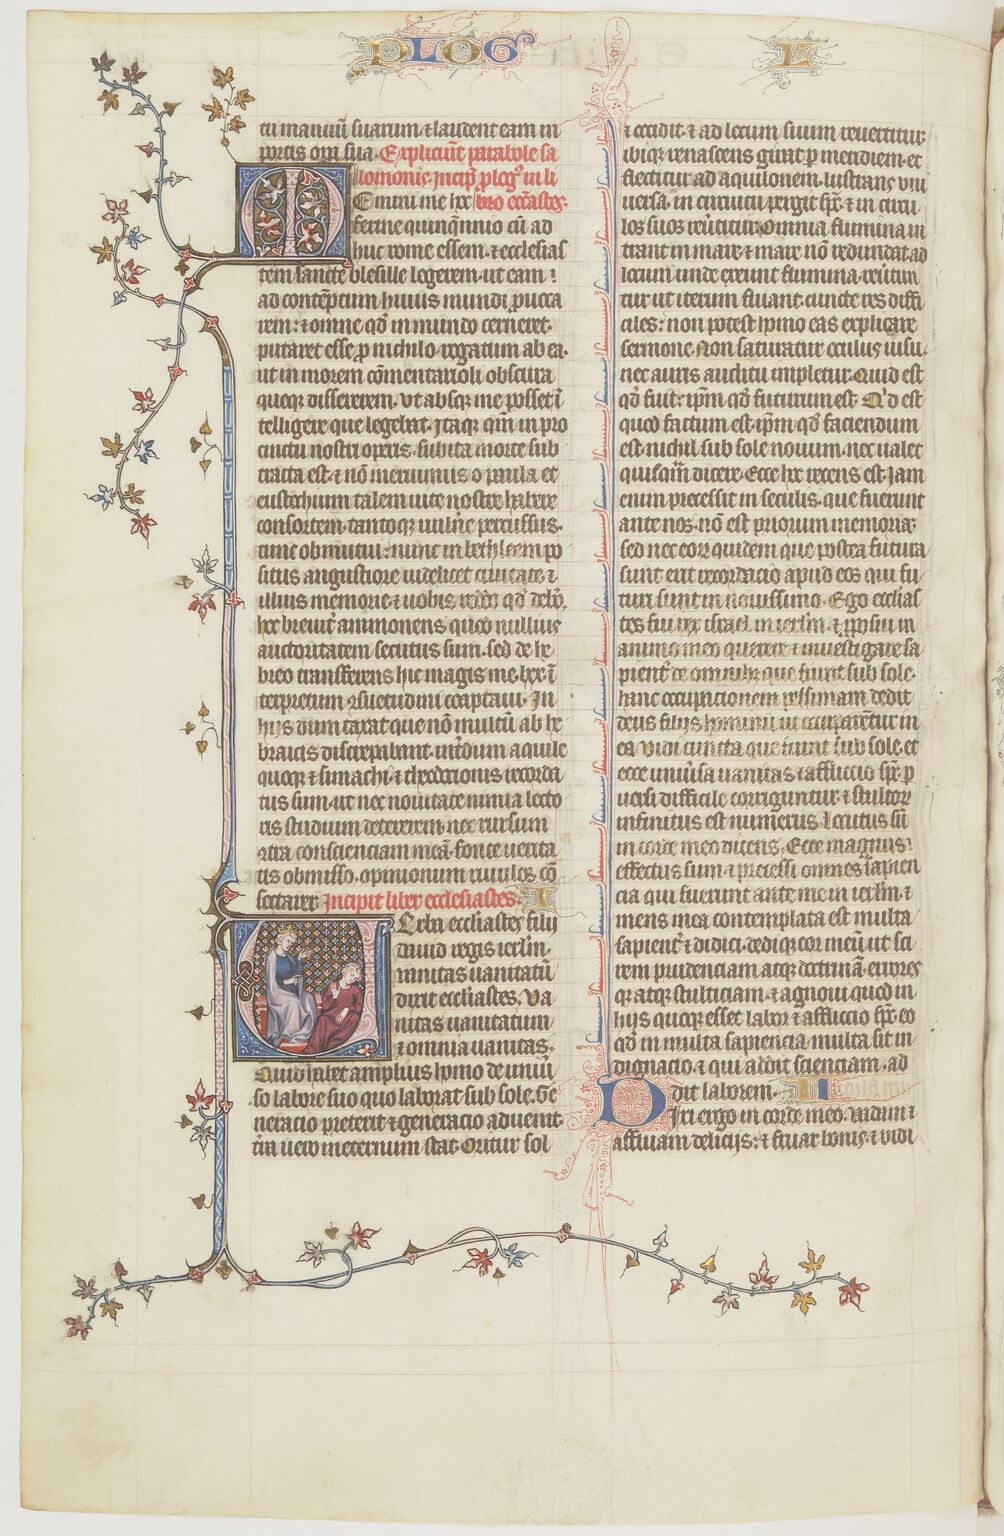 PLOG
L
tu manuū suarum ⁊ laudent eam in
portis opa sua. Expliciūt parabole sa
lomonis. Incip̄ p̄log9 in li
Emini me hec bro eccāstes.
ferme quinq̄nnio cū ad
huc rome essem. ⁊ ecclesias
tem sancte blesille legerem. ut eam
ad contēptum huius mundi ꝓuoca
rem: ⁊ omne qd̄ in mundo cerneret.
putaret esse ꝓ nichilo. rogatum ab ea.
ut in morem cōmentarioli obscura
queq; dissererem. ut absq; me posset ī
telligere que legebat. Itaq; qm̄ in pro
cinctu nostri operis. subita morte sub
tracta est. ⁊ nō meruimus o paula et
eustochium talem uite nostre habere
consortem. tantoq; uuln̄e percussus.
tunc obmutui: nunc in bethleem po
situs angustiore uidelicet ciuitate. ⁊
illius memorie ⁊ uobis reddo qd̄ debo.
hec breuit̄ ammonens quod nullius
auctoritatem secutus sum. sed de he
breo transferens
terpretum ꝯsuetudini coaptaui. In
hijs dum taxat que nō multū ab he
braicis discrepabant. int̄dum aquile
quoq; ⁊ simachi ⁊ theodotionis recorda
tus sum. ut nec nouitate nimia lecto
ris studium deterrerem. nec rursum
ꝯtra conscienciam meā. fonte uerita
tis obmisso. opinionum riuulos cō
sectarer. Incipit liber ecclesiastes. I
Verba ecclīastes filij
dauid regis ierlm̄.
uanitas uanitatū
dixit ecclīastes. Va
nitas uanitatum
⁊ omnia uanitas.
Quid habet amplius homo de uniūso
labore suo quo laborat sub sole. Ge
neracio preterit ⁊ generacio aduenit.
t̄ra uero in eternum stat. Oritur sol
⁊ occidit. ⁊ ad locum suum reuertitur.
ibiq; renascens girat p̄ meridiem. et
flectitur ad aquilonem. lustrans uni
uersa. in circuitu pergit sp̄c. ⁊ in circu
los suos reūtitur. Omnia flumina in
trant in mare. ⁊ mare nō redundat. ad
locum unde exeunt flumina. reūtun
tur ut iterum fluant. cuncte res diffi
ciles: non potest homo eas explicare
sermone. Non saturatur oculus uisu.
nec auris auditu impletur. Quid est
qd̄ fuit: ip̄m qd̄ futurum est. Q'd est
quod factum est. ip̄m qd̄ faciendum
est. nichil sub sole nouum. nec ualet
quisq̄m dicere. Ecce hec recens est. Iam
enim precessit in seculis. que fuerunt
ante nos. nō est priorum memoria:
sed nec eorꝝ quidem que postea futura
sunt erit recordacio apud eos qui fu
turi sunt in nouissimo. Ego ecclīas
tes fui rex israel in ierlm̄. ⁊ ꝓposui in
animo meo querere ⁊ inuestigare sa
pient̄ de omnib; que fiunt sub sole.
hanc occupacionem pessimam dedit
deus filijs hominū ut occuparētur in
ea. vidi cuncta que fiunt sub sole. et
ecce uniūsa uanitas ⁊ affliccio sp̄c. ꝑ
uersi difficile corriguntur. ⁊ stultorꝝ
infinitus est numerus. Locutus sū
in corde meo dicens. Ecce magnus
effectus sum. ⁊ precessi omnes sapien
cia qui fuerunt ante me in ierlm̄. ⁊
mens mea contemplata est multa
sapient̄. ⁊ didici. dediq; cor meū ut sci
rem prudenciam atq; doctrinā. errores
q; atq; stulticiam. ⁊ agnoui quod in
hijs quoq; esset labor ⁊ affliccio sp̄c. eo
qd̄ in multa sapiencia. multa sit in
dignacio. ⁊ qui addit scienciam. ad
dit laborem. II
Dixi ergo in corde meo. vadam ⁊
affluam delicijs: ⁊ fruar bonis. ⁊ vidi